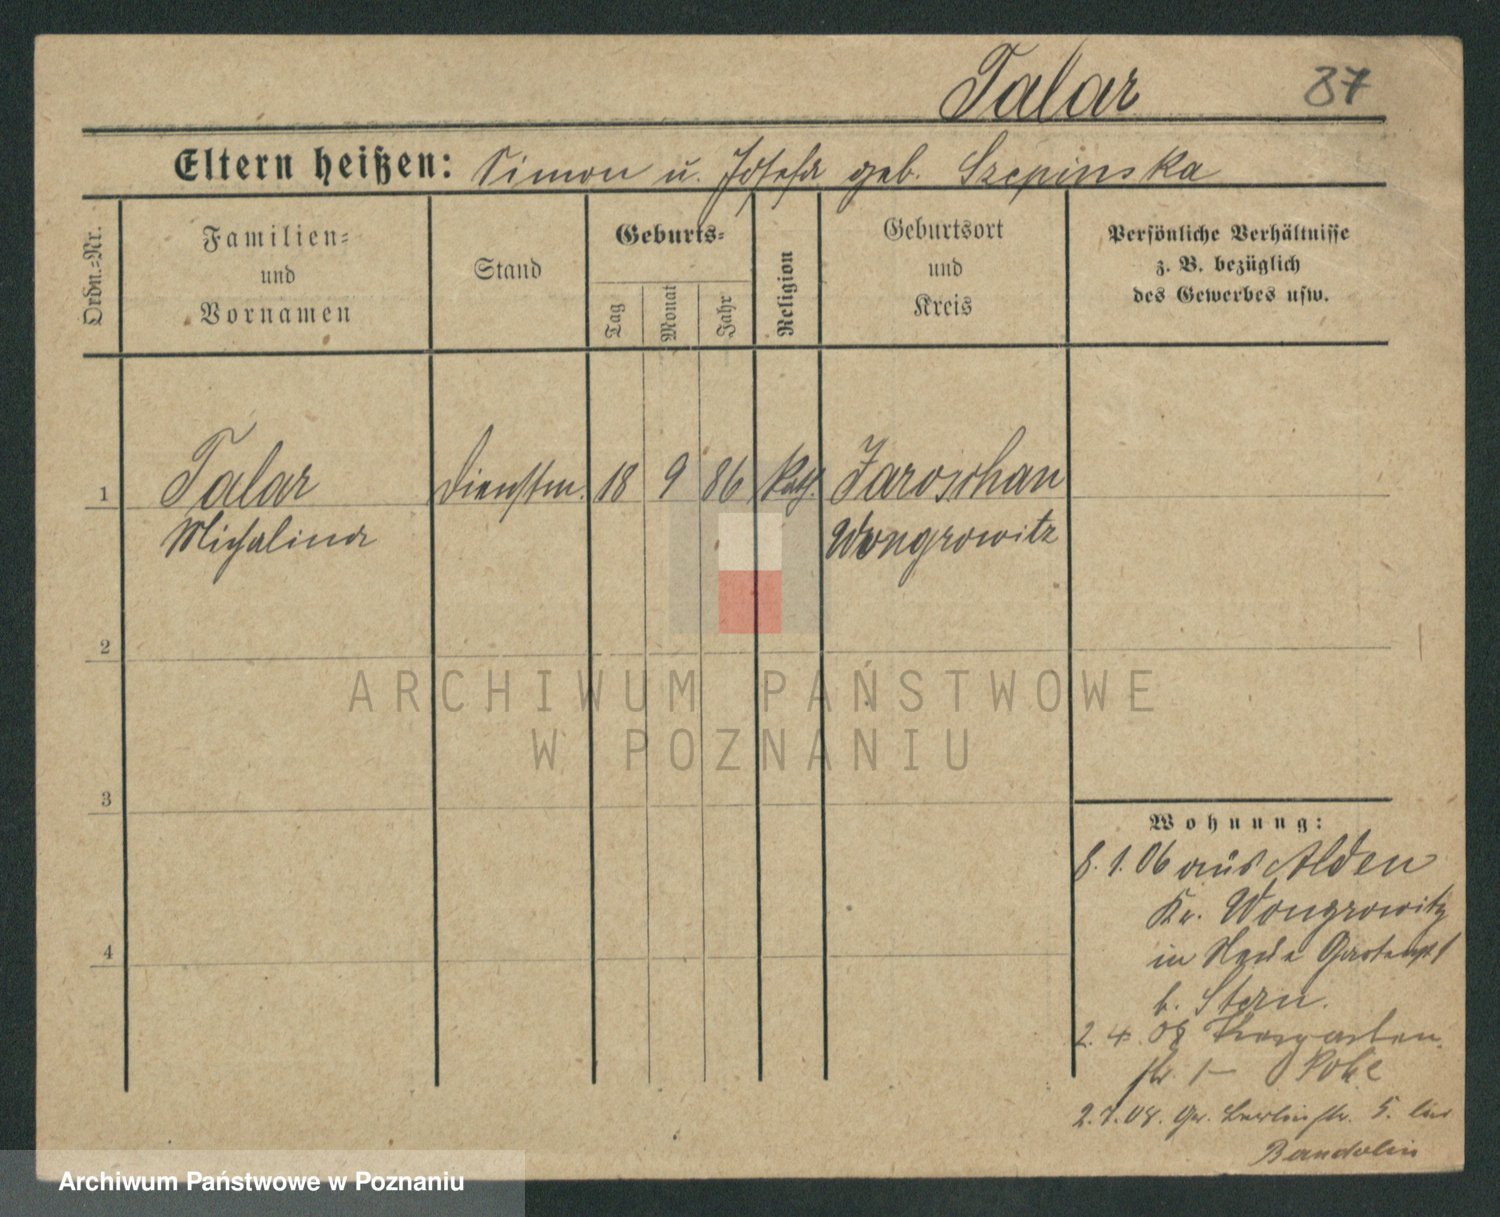 Talar 87
Eltern heißen: Simon u. Josefa geb. Szepinska
Ordn.-Nr.
Familien-
und
Vornamen
Stand
Geburts-
Tag
Monat
Jahr
Religion
Geburtsort
und
Kreis
Persönliche Verhältnisse
z. B. bezüglich
des Gewerbes usw.
1 Talar Dienstm. 18 9 86 kath. Jaroschau
Michalina Wongrowitz
2
3
4
ARCHIWUM PAŃSTWOWE
W POZNANIU
Wohnung:
8. 1. 06 aus Alden
Kr. Wongrowitz
in
b. Stern.
2. 4. 08
str. 1
2. 7. 08. Gr. Berlinerstr. 5. bei
Bandolin
Archiwum Państwowe w Poznaniu